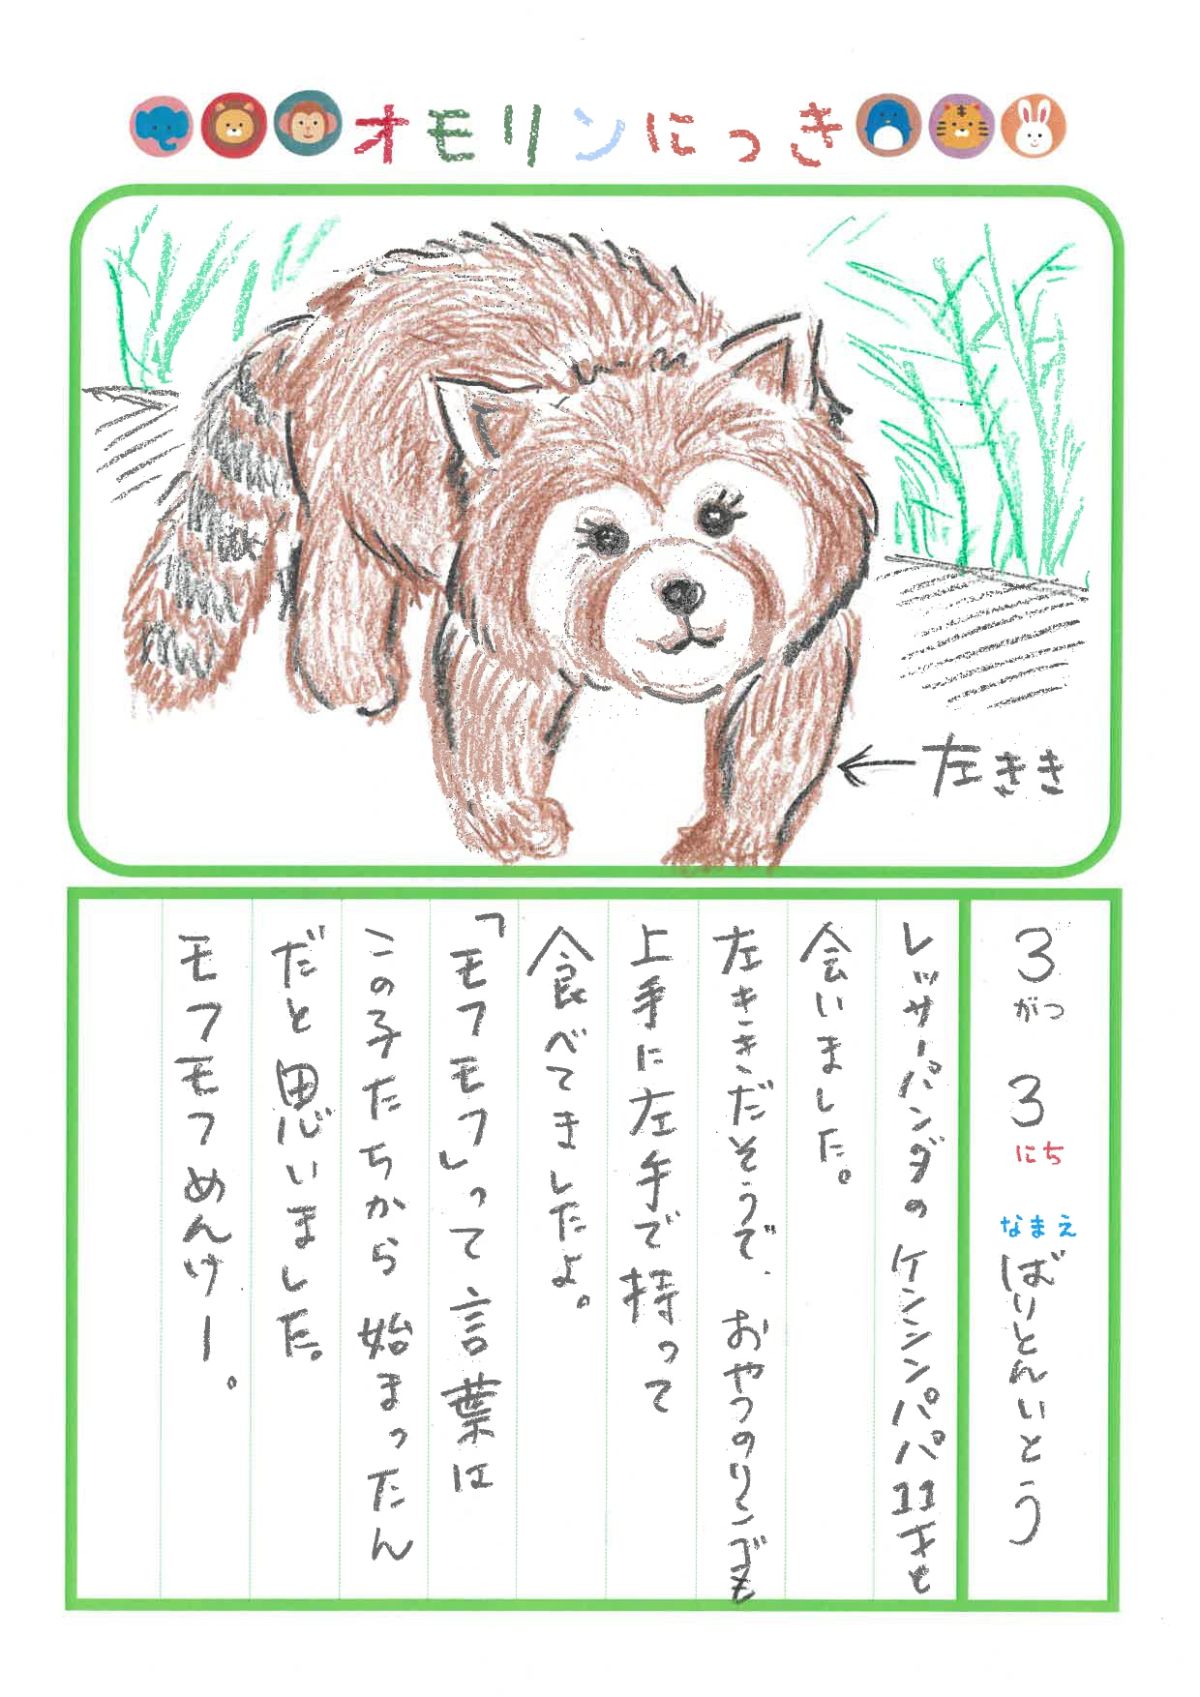 オモリンにっき
←左きき
3がつ 3にち なまえ ばりとんいとう
レッサーパンダのケンシンパパ11才と
会いました。
左ききだそうで、おやつのリンゴも
上手に左手で持って
食べてましたよ。
「モフモフ」って言葉は
この子たちから始まったん
だと思いました。
モフモフめんけー。